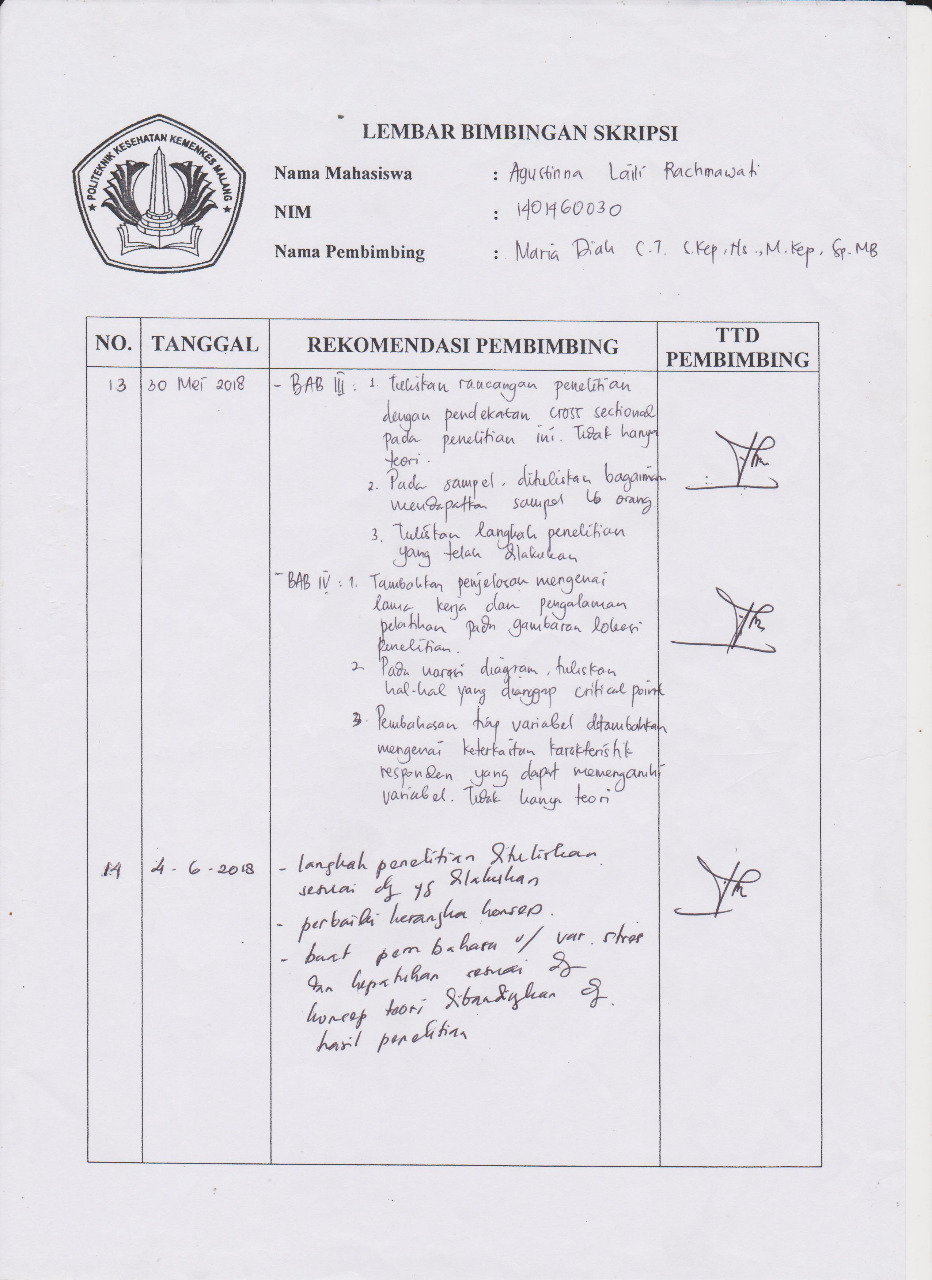 POLITEKNIK KESEHATAN KEMENKES MALANG
LEMBAR BIMBINGAN SKRIPSI
Nama Mahasiswa : Agustinna Laili Rachmawati
NIM : 1401460030
Nama Pembimbing : Maria Diah C.T. S.Kep, Ns., M.Kep, Sp.MB
NO. TANGGAL REKOMENDASI PEMBIMBING TTD PEMBIMBING
13 30 Mei 2018 - BAB III : 1. tuliskan rancangan penelitian
dengan pendekatan cross sectional
pada penelitian ini. Tidak hanya
teori.
2. Pada sampel, dituliskan bagaiman
mendapatkan sampel 16 orang
3. Tuliskan langkah penelitian
yang telah dilakukan
- BAB IV : 1. Tambahkan penjelasan mengenai
lama kerja dan pengalaman
pelatihan pada gambaran lokasi
penelitian.
2. Pada narasi diagram, tuliskan
hal-hal yang dianggap critical point
3. Pembahasan tiap variabel ditambahkan
mengenai keterkaitan karakteristik
responden yang dapat memengaruhi
variabel. Tidak hanya teori
14 4-6-2018 - langkah penelitian dituliskan
sesuai dg yg dilakukan
- perbaiki kerangka konsep.
- buat pembahasa u/ var. stres
dan kepatuhan sesuai dg
konsep teori dibandingkan dg
hasil penelitian